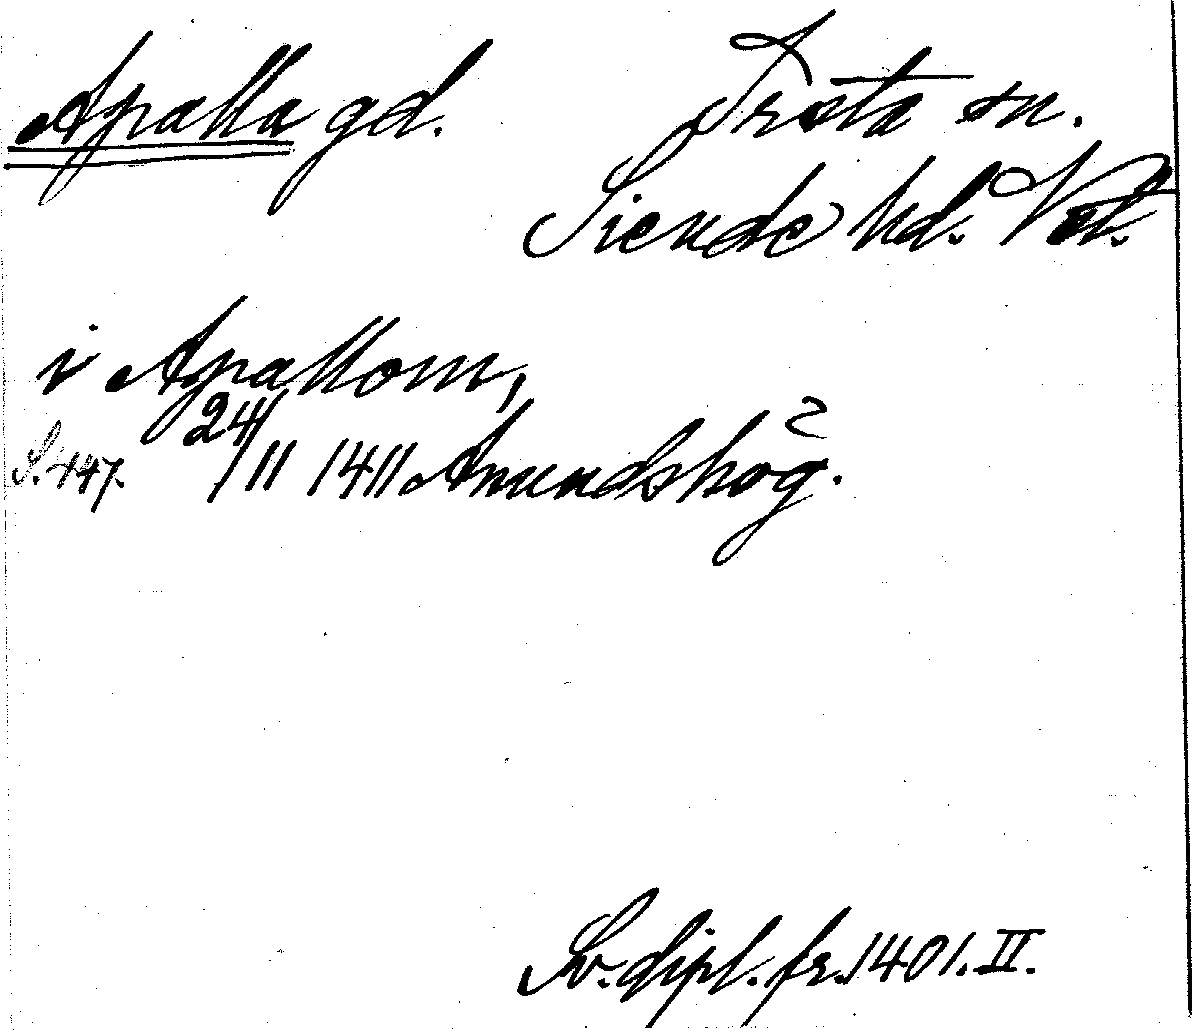 Apalla gd. Irsta sn.
Siende hd. Vstl.
i Apallom,
S. 447. 24/11 1411 Amundshög.
Sv. dipl. fr. 1401. II.